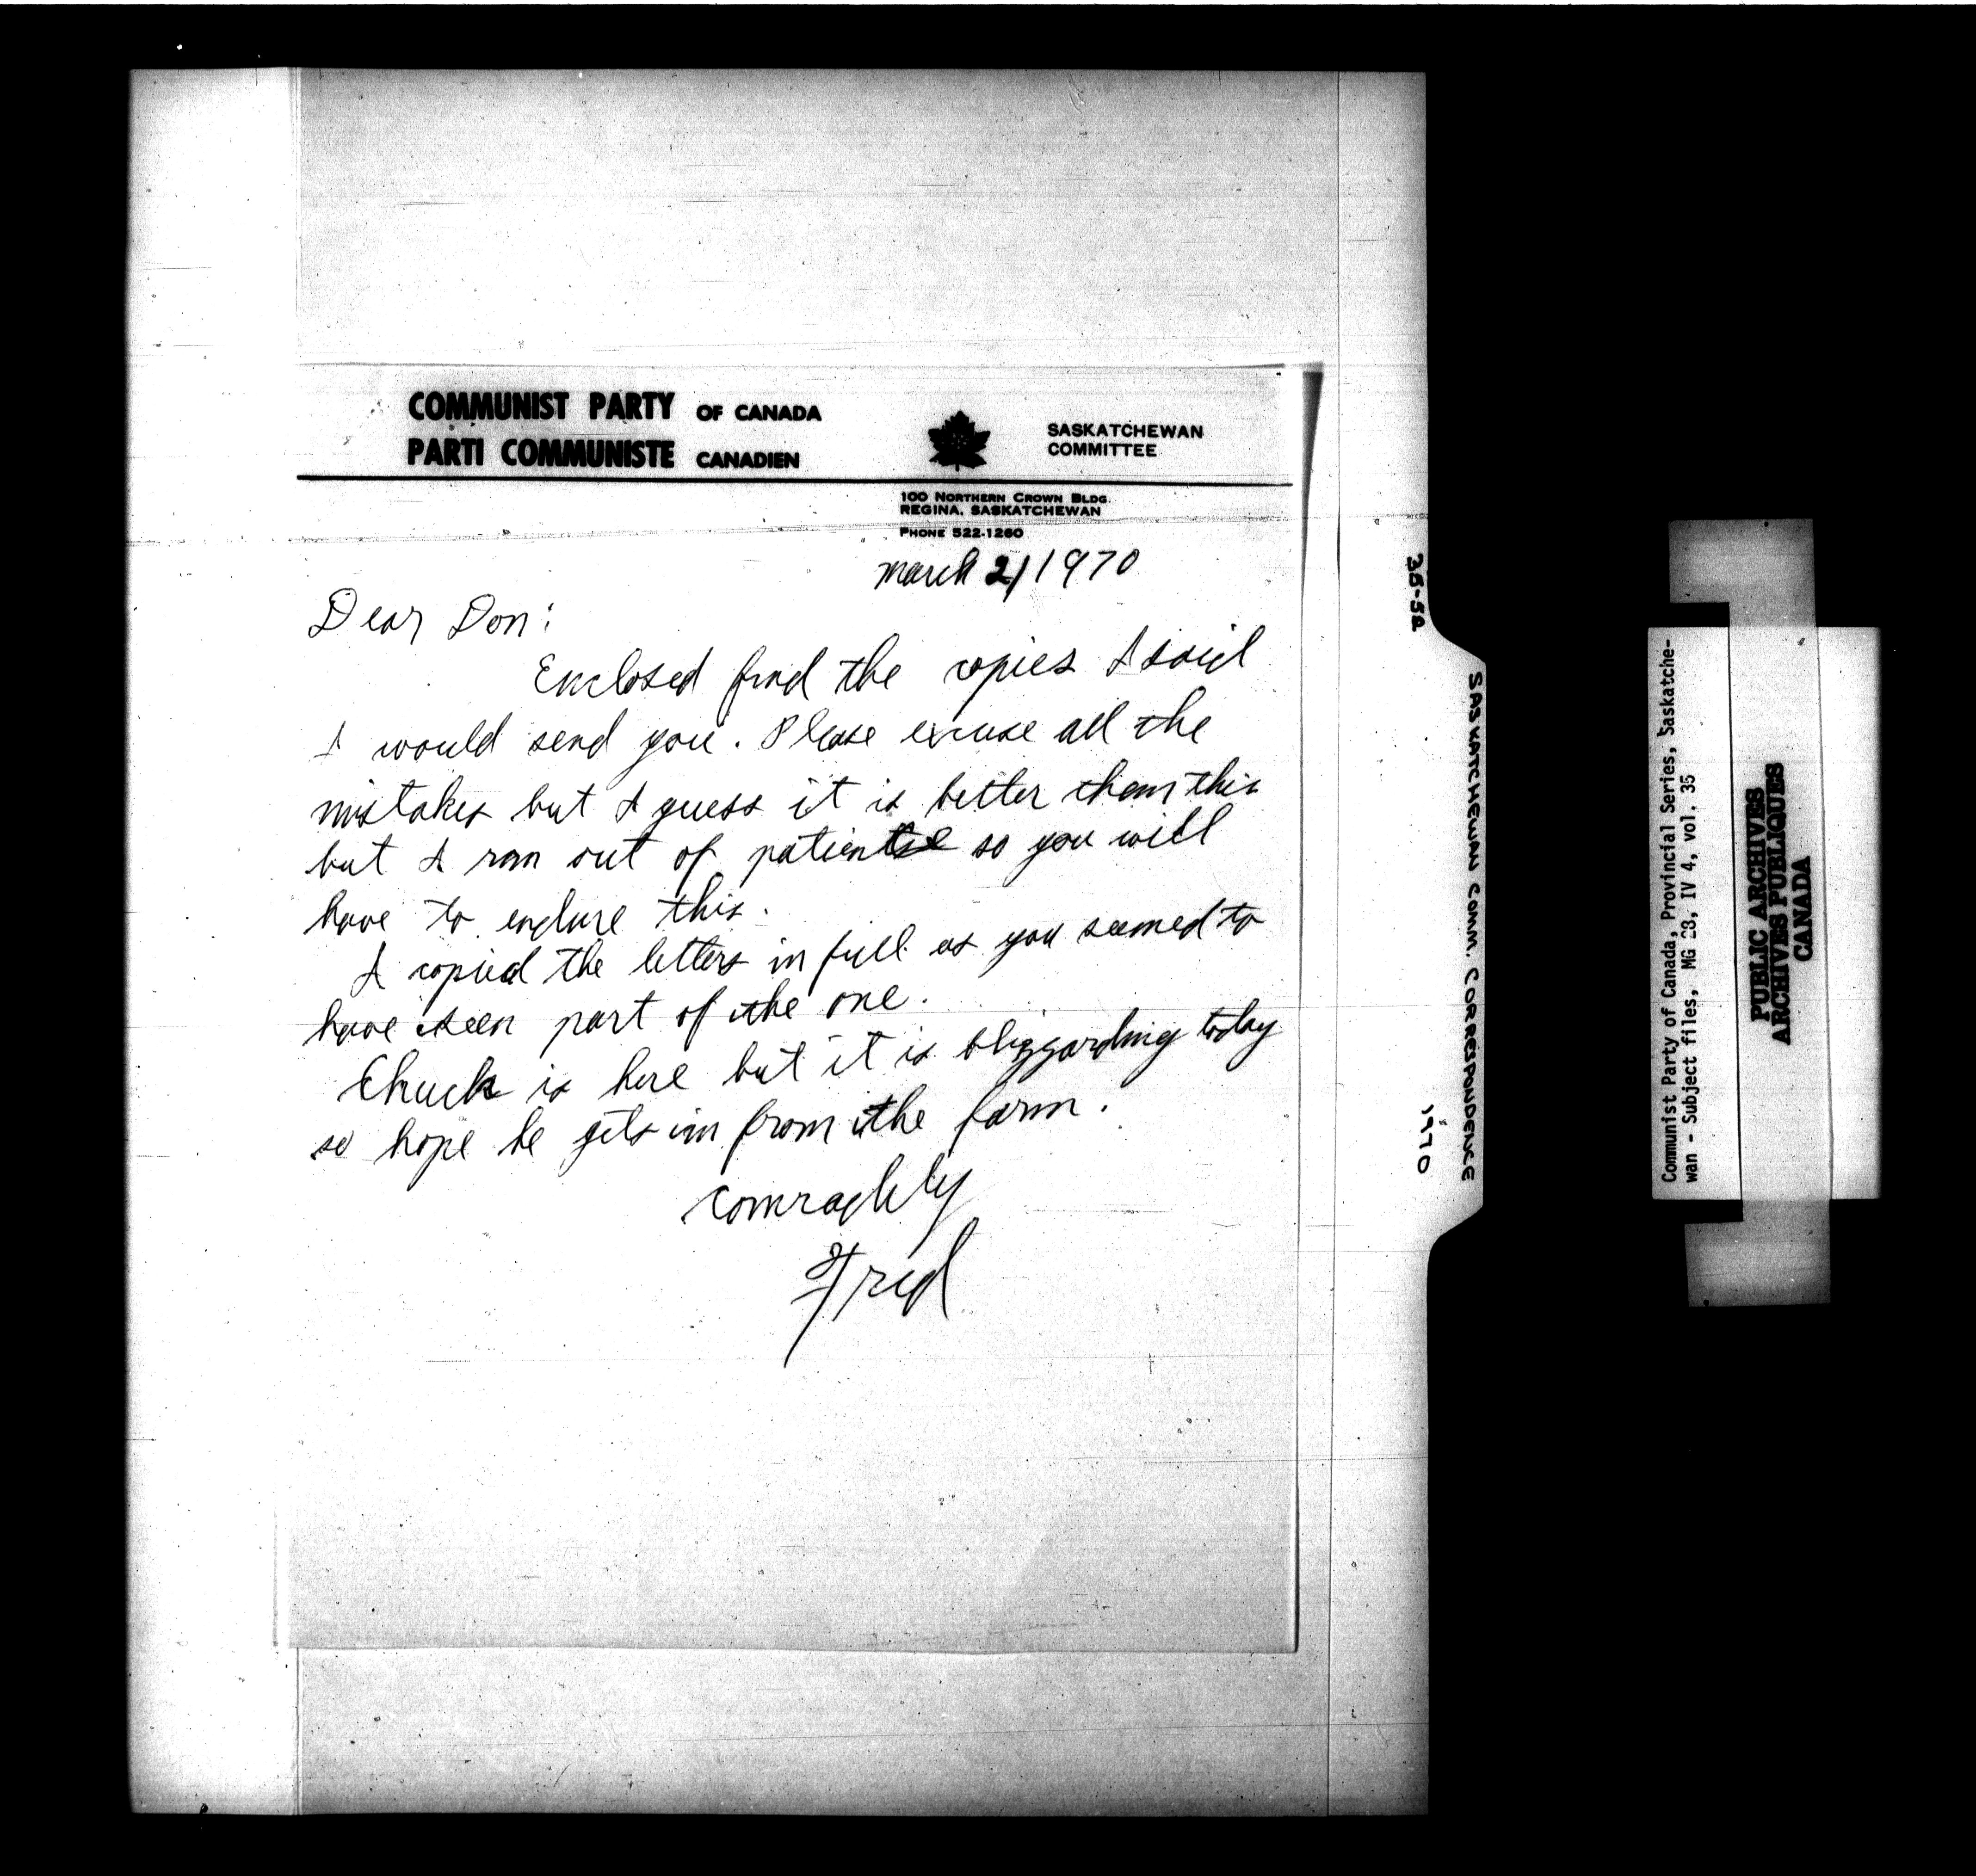 COMMUNIST PARTY OF CANADA
PARTI COMMUNISTE CANADIEN
SASKATCHEWAN
COMMITTEE
100 NORTHERN CROWN BLDG.
REGINA, SASKATCHEWAN
PHONE 522-1260
March 2/1970
Dear Don:
Enclosed find the copies I said
I would send you. Please excuse all the
mistakes but I guess it is better than this
but I ran out of patientce so you will
have to endure this.
I copied the letters in full as you seemed to
have seen part of the one.
Chuck is here but it is blizzarding today
so hope he gets in from the farm.
Comradely
Fred
35-52
SASKATCHEWAN COMM. CORRESPONDENCE
1970
Communist Party of Canada, Provincial Series, Saskatche-
wan - Subject files, MG 28, IV 4, vol. 35
PUBLIC ARCHIVES
ARCHIVES PUBLIQUES
CANADA